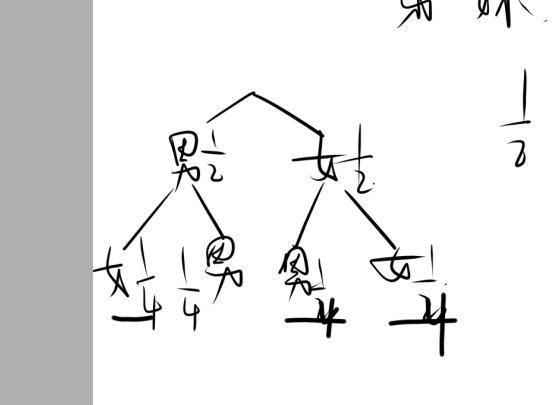 男 1/2 女 1/2
女 1/4 1/4 男 男 1/4 女 1/4